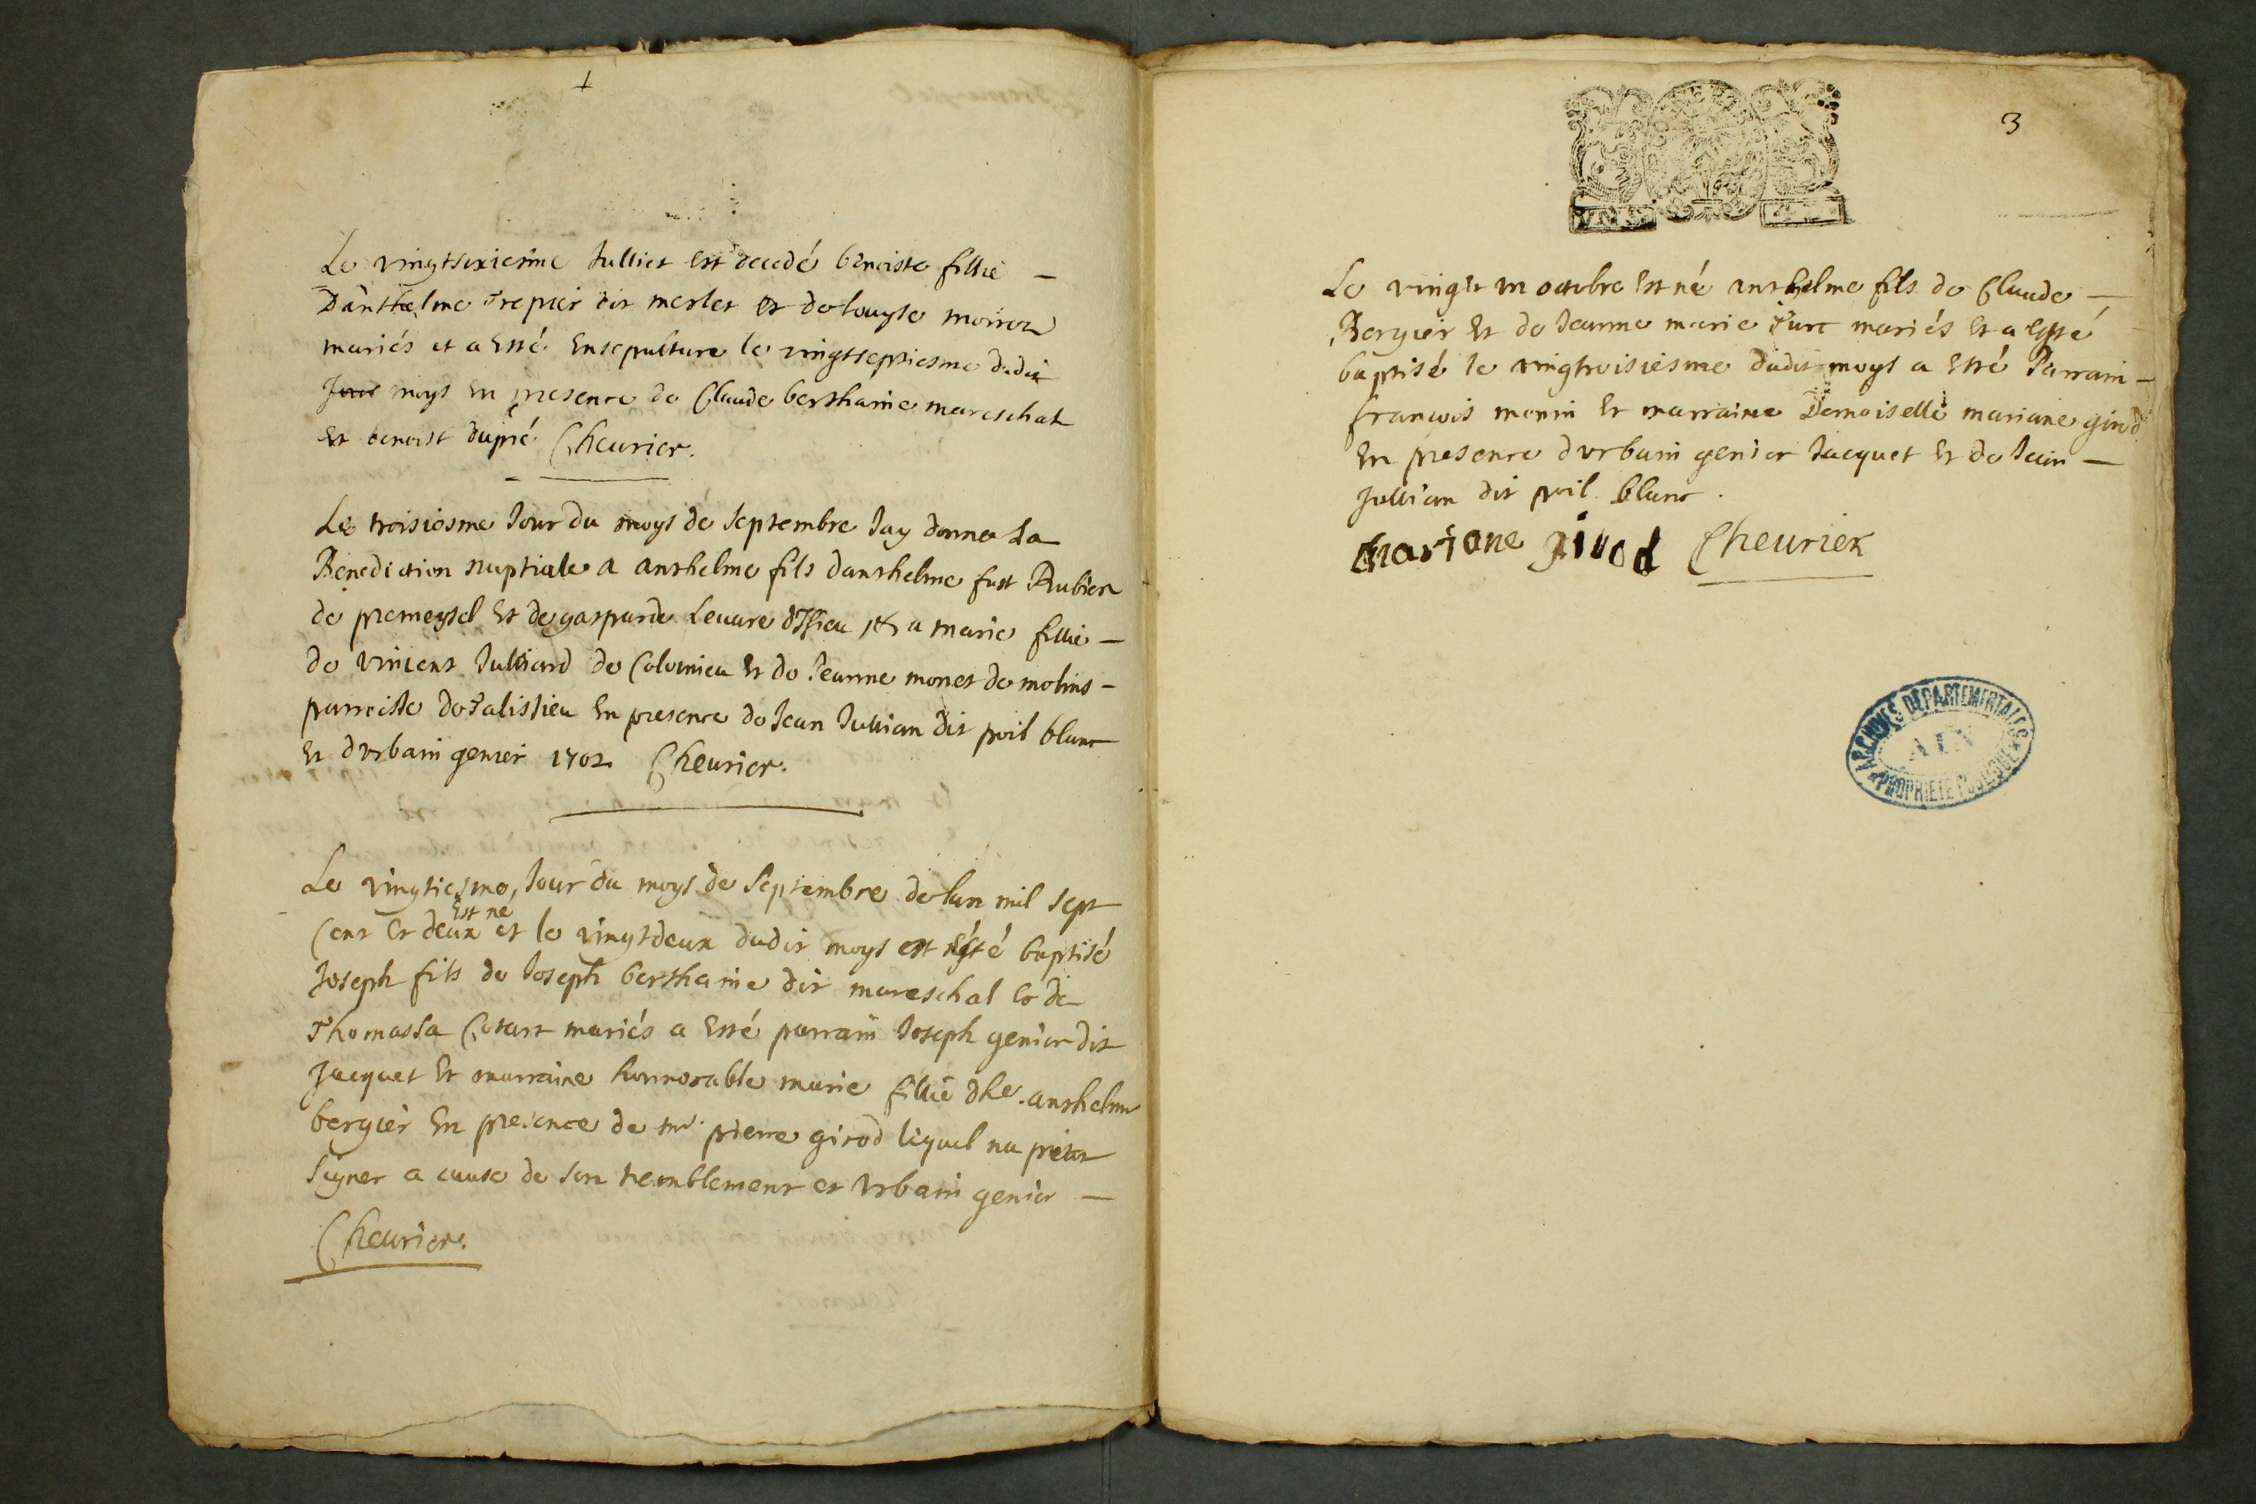 Le vingtsixiesme Julliet est decedé benoiste fillie –
Danthelme Trepier dit merlet et de louyse moiroz
mariés et a esté Ensepulture le vingtseptiesme dudit
moys en presence de Claude berthame mareschat
et benoist dupré Cheurier.
Le troisiesme Jour du moys de Septembre Jay donne La
Benediction nuptiale a anthelme fils danthelme fust Rubier
de premeysel et de gasparde Leuure et a marie fillie –
de vincent Julliard de Colomieu et de Jeanne monet de molins –
parroisse de Talissieu en presence de Jean Jullian dit poil blanc
et durbain genier 1702 Cheurier.
Le vingtiesme Jour du moys de Septembre de lan mil sept
est ne
Cent et deux et le vingtdeux dudit moys est esté baptisé
Joseph fils de Joseph berthame dit mareschal et de
Thomassa mariés a esté parrain Joseph genier dit
Jacquet et marraine honnorable marie fillie dhe. anthelme
bergier En presence de mr. pierre girod lequel na
signer a cause de son tremblement et Vrbain genier –
Cheurier.
3
Le vingt un octobre Est né anthelme fils de Claude –
Bergier et de Jeanne marie mariés et a esté
baptisé le vingtroisiesme dudit moys a esté Parrain –
francois monin et marraine Demoiselle mariane girod
en presence durbain genier Jacquet et de Jean –
Jullian dit poil blanc.
Mariane girod Cheurier
ARCHIVES DEPARTEMENTALES
AIN
PROPRIETE PUBLIQUE